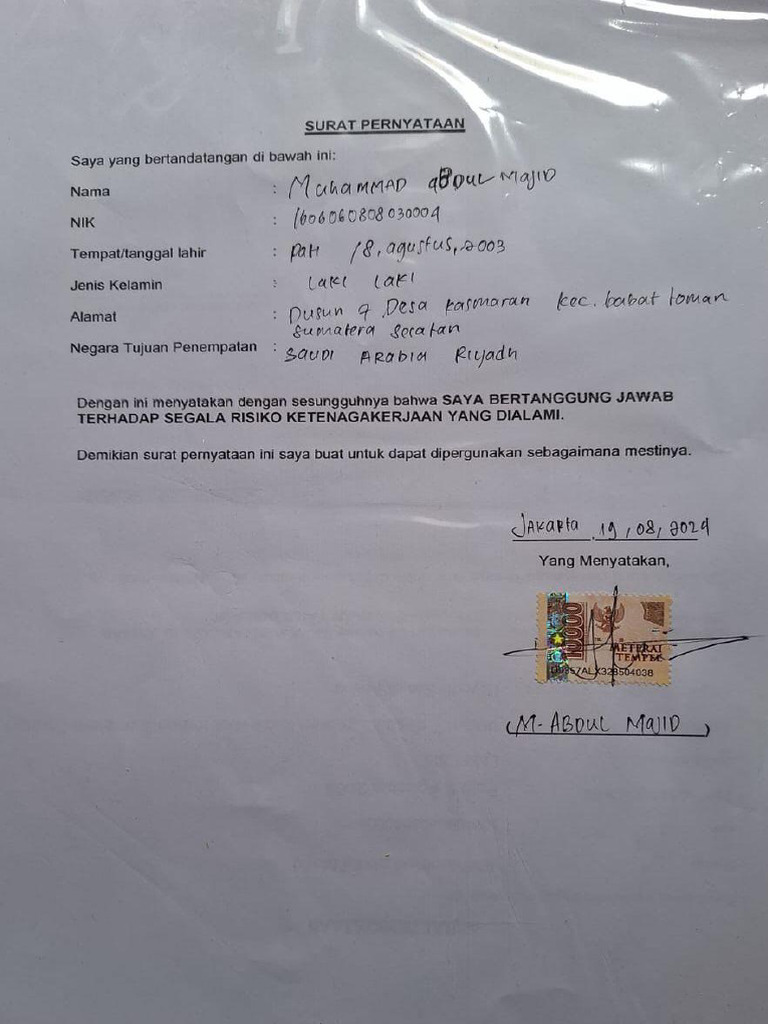 SURAT PERNYATAAN
Saya yang bertandatangan di bawah ini:
Nama : Muhammad abdul Majid
NIK : 1606060808030004
Tempat/tanggal lahir : Pati / 8, agustus, 2003
Jenis Kelamin : Laki Laki
Alamat : Dusun 9 Desa kasmaran kec. babat toman
sumatera Selatan
Negara Tujuan Penempatan : SAUDI ARABIA Riyadh
Dengan ini menyatakan dengan sesungguhnya bahwa SAYA BERTANGGUNG JAWAB
TERHADAP SEGALA RISIKO KETENAGAKERJAAN YANG DIALAMI.
Demikian surat pernyataan ini saya buat untuk dapat dipergunakan sebagaimana mestinya.
Jakarta, 19, 08, 2024
Yang Menyatakan,
10000
METERAI
TEMPEL
(M- ABDUL MAJID)